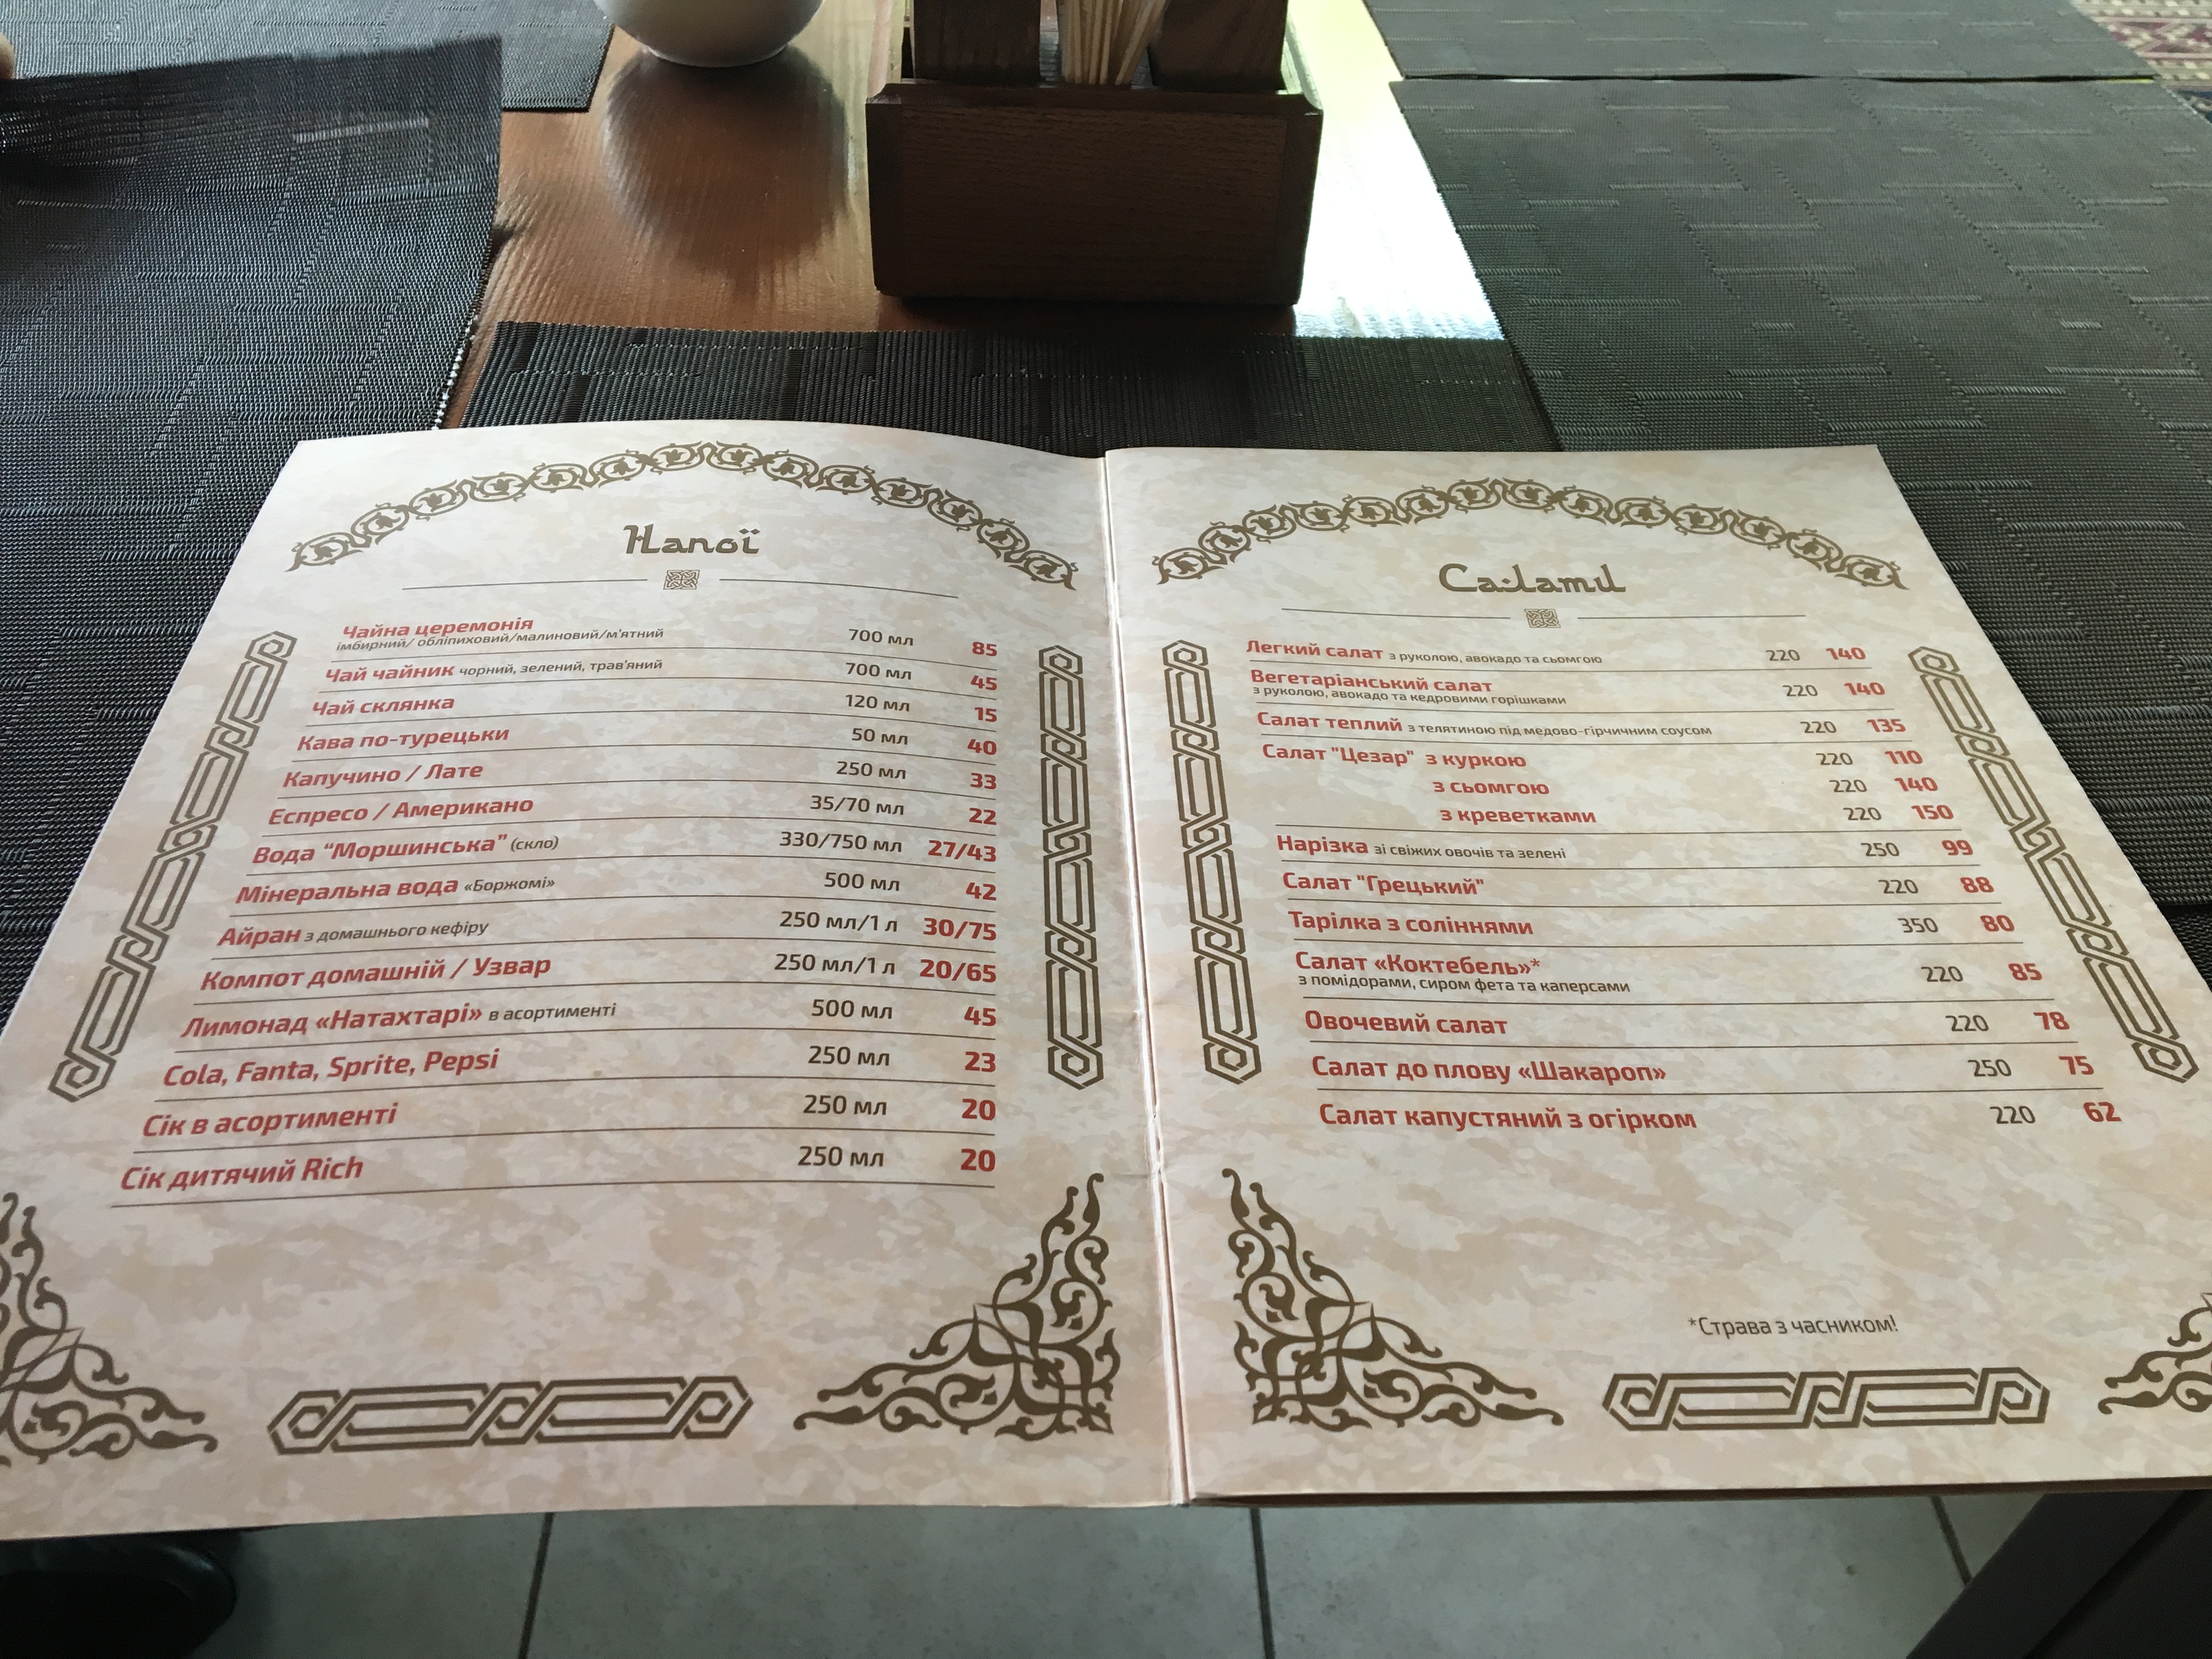 Напої
Чайна церемонія 700 мл 85
імбирний/ обліпиховий/малиновий/м'ятний
Чай чайник чорний, зелений, трав'яний 700 мл 45
Чай склянка 120 мл 15
Кава по-турецьки 50 мл 40
Капучино / Лате 250 мл 33
Еспресо / Американо 35/70 мл 22
Вода “Моршинська” (скло) 330/750 мл 27/43
Мінеральна вода «Боржомі» 500 мл 42
Айран з домашнього кефіру 250 мл/1 л 30/75
Компот домашній / Узвар 250 мл/1 л 20/65
Лимонад «Натахтарі» в асортименті 500 мл 45
Cola, Fanta, Sprite, Pepsi 250 мл 23
Сік в асортименті 250 мл 20
Сік дитячий Rich 250 мл 20
Салати
Легкий салат з руколою, авокадо та сьомгою 220 140
Вегетаріанський салат 220 140
з руколою, авокадо та кедровими горішками
Салат теплий з телятиною під медово-гірчичним соусом 220 135
Салат "Цезар" з куркою 220 110
з сьомгою 220 140
з креветками 220 150
Нарізка зі свіжих овочів та зелені 250 99
Салат "Грецький" 220 88
Тарілка з соліннями 350 80
Салат «Коктебель»* 220 85
з помідорами, сиром фета та каперсами
Овочевий салат 220 78
Салат до плову «Шакароп» 250 75
Салат капустяний з огірком 220 62
*Страва з часником!